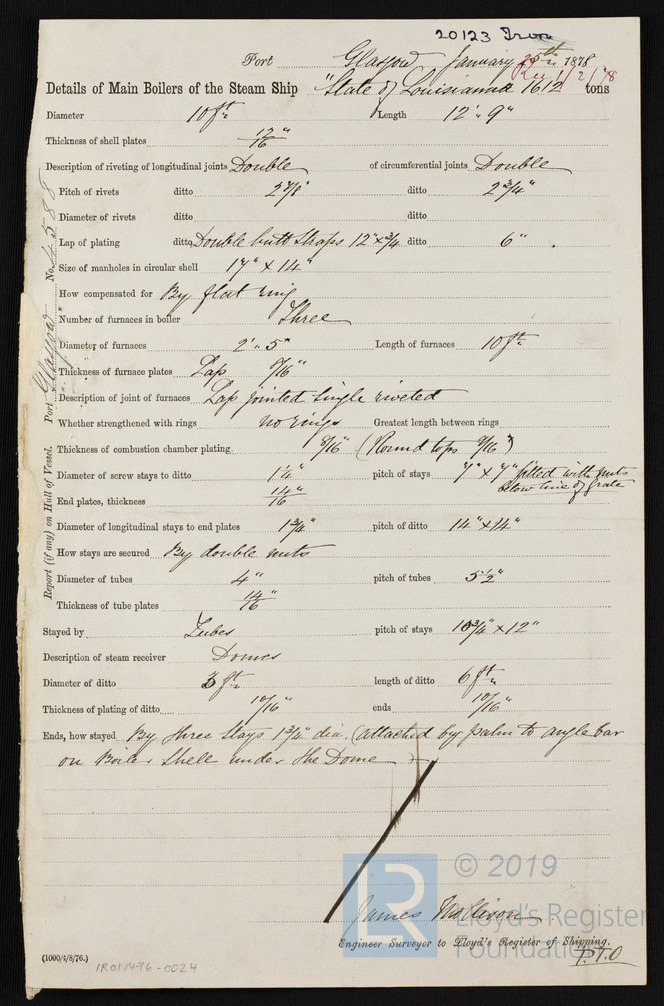 20123 Iron
Port Glasgow January 25th 1878
Rec 1/2/78
Details of Main Boilers of the Steam Ship "State of Louisianna 1612 tons
Diameter 10 ft. Length 12'. 9"
Thickness of shell plates 12/16"
Description of riveting of longitudinal joints Double of circumferential joints Double
Pitch of rivets ditto 2 7/8" ditto 2 3/4"
Diameter of rivets ditto ditto
Lap of plating ditto Double butt Straps 12" x 3/4 ditto 6"
Size of manholes in circular shell 17" x 14"
How compensated for By flat ring
Number of furnaces in boiler Three
Diameter of furnaces 2'. 5" Length of furnaces 10 ft.
Thickness of furnace plates Lap 9/16"
Description of joint of furnaces Lap jointed Single riveted
Whether strengthened with rings no rings Greatest length between rings
Thickness of combustion chamber plating 8/16" (Round tops 9/16")
Diameter of screw stays to ditto 1 1/4" pitch of stays 7" x 7" fitted with nuts
below line of Grate
End plates, thickness 14/16"
Diameter of longitudinal stays to end plates 1 3/4" pitch of ditto 14" x 14"
How stays are secured By double nuts
Diameter of tubes 4" pitch of tubes 5 1/2"
Thickness of tube plates 14/16"
Stayed by Tubes pitch of stays 10 3/4" x 12"
Description of steam receiver Domes
Diameter of ditto 3 ft. length of ditto 6 ft.
Thickness of plating of ditto 10/16" ends 10/16"
Ends, how stayed By three Stays 1 3/4" dia. (attached by palm to angle bar
on Boiler Shell under the Dome
James Mollison
Engineer Surveyor to Lloyd's Register of Shipping.
P.T.O
(1000/4/8/76.)
IRON496-0024
Report (if any) on Hull of Vessel. Port Glasgow No. 4588
LR
© 2019
Lloyd's Register
Foundation